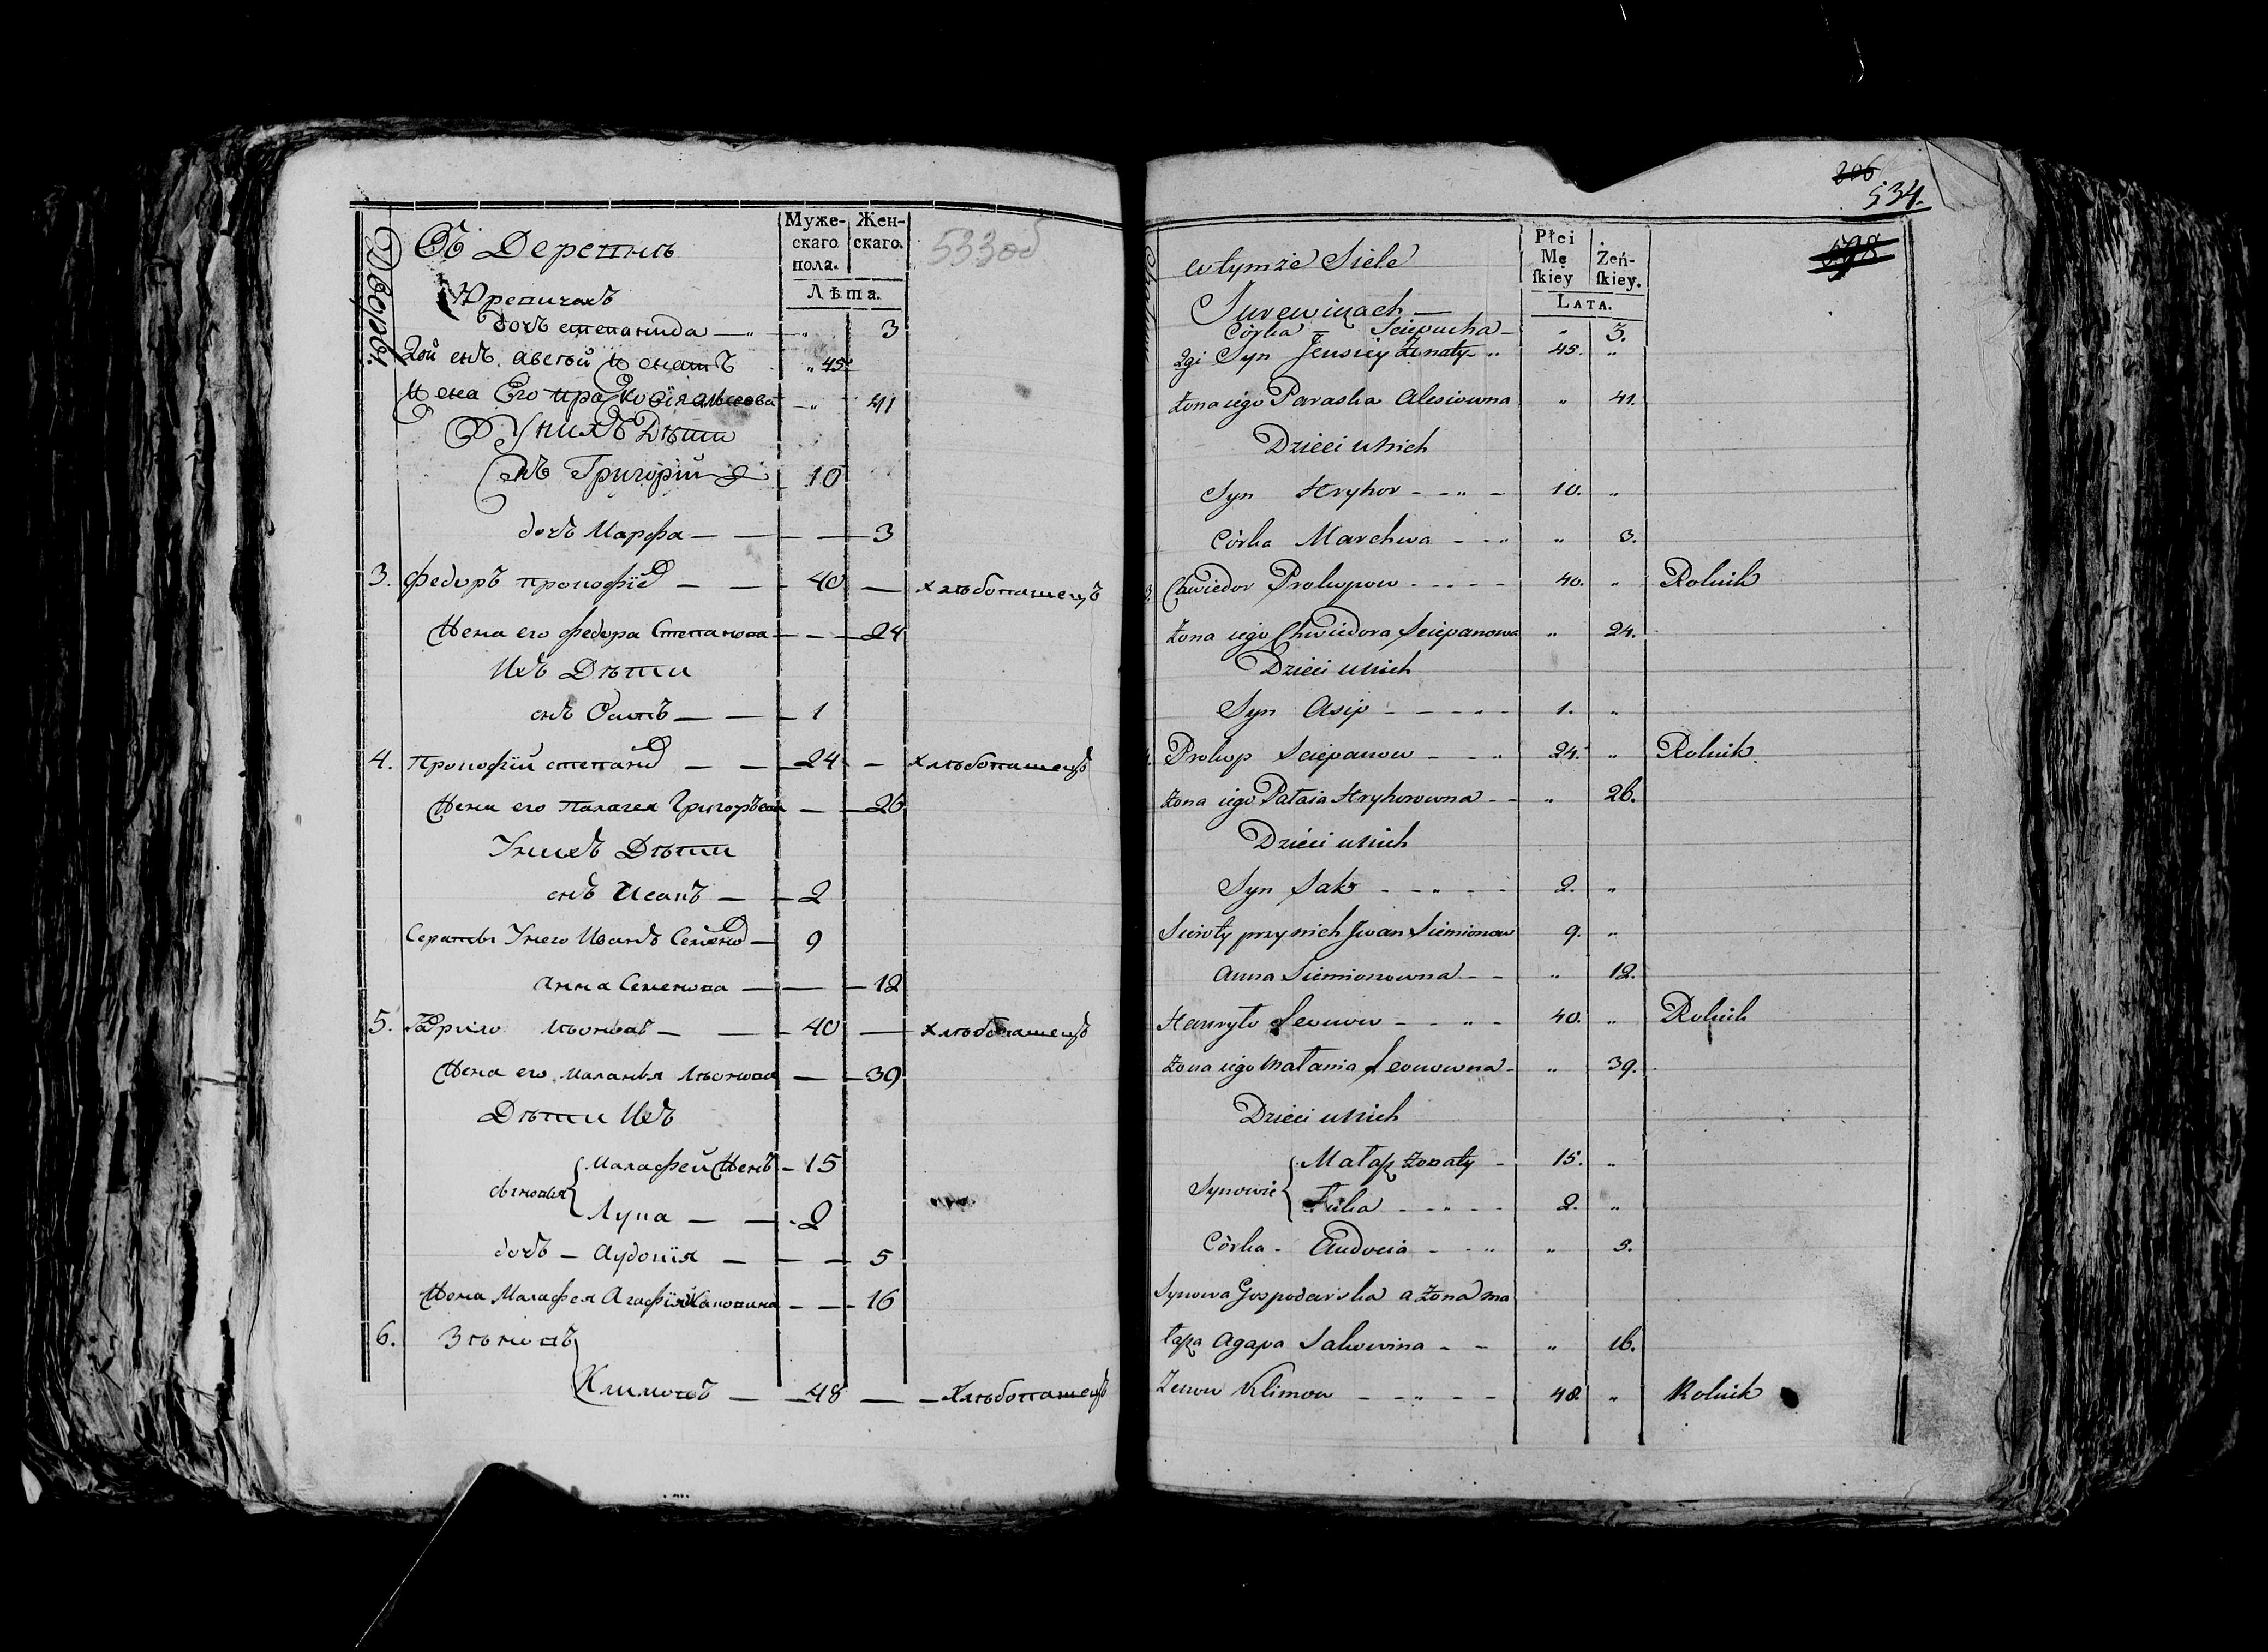 Дворы.
Въ Деревнѣ
Муже-
скаго
пола.
Жен-
скаго.
Лѣта.
533 об
Юревичахъ
дочъ степанида — „ 3
2ой снъ евсей женатъ „ 45.
Жена Его прасковія алисеева — „ 41
У нихъ Дѣти
Снъ Григорій 10
дочъ Марфа — — — — 3
3. федоръ прокофіев — — 40 — хлѣбопашецъ
Жена его федора Степанова — — 24
Ихъ Дѣти
снъ Осипъ — — 1
4. Прокофій степанов — — 24 — хлѣбопашецъ
Жена его палагея Григорьева — — 26
У нихъ Дѣти
снъ Исакъ — 2
Сераты У него Иванъ Семенов — 9
анна Семенова — — — 12
5. Гаврило Лѣоновъ — — 40 — хлѣбопашецъ
Жена его маланья Лѣонова — — 39
Дѣти Ихъ
сыновья { Малафей Женъ — 15
Лука — — 2
дочъ — Аудокія — — — 5
Жена Малафея Агафія Саковина — — 16
6. Зѣновъ
Климовъ — — 48 — — Хлѣбопашецъ
206
534.
598
w tymże Siele
Płci
Mę
ſkiey
Żeń-
ſkiey.
Lata.
Jurewiczach —
Córka — Sciepucha — „ 3.
2gi Syn Jeusiey Żonaty „ 45. „
Żona iego Paraska Alesiowna „ 41.
Dzieci u Nich
Syn Hryhor - - „ - 10. „
Córka Marchwa - - „ „ 3.
3. Chwiedor Prokopow - - - - 40. „ Rolnik
Żona iego Chwiedora Sciepanowa „ 24.
Dzieci u Nich
Syn Asip - - - - - 1. „
4. Prokop Sciepanow - - „ 24. „ Rolnik.
Żona iego Pałaia Hryhorowna - - „ 26.
Dzieci u Nich
Syn Sak - - „ - - 2. „
Sieroty przy nich Jwan Siemionow 9. „
Anna Siemionowna - - „ 12.
Hauryło Leonow - - „ - 40. „ Rolnik
Żona iego Małania Leonowna - „ 39.
Dzieci u Nich
Synowie { Małap Żonaty - 15. „
Łuka - - „ - - 2. „
Córka - Audocia - - „ „ 5.
Synowa Gospodarska a Żona Ma
łapa Agapa Sakowina - - „ 16.
Zenow Klimow - - „ - - 48. „ Rolnik